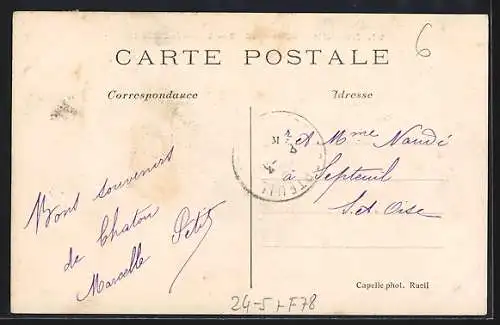 6
CARTE POSTALE
Correspondance
Adresse
A Mme Naudé
à Septeuil
S. et. Oise
Bons souvenirs
de Chatou
Marcelle Petit
Capelle phot. Rueil
24-5 + F78